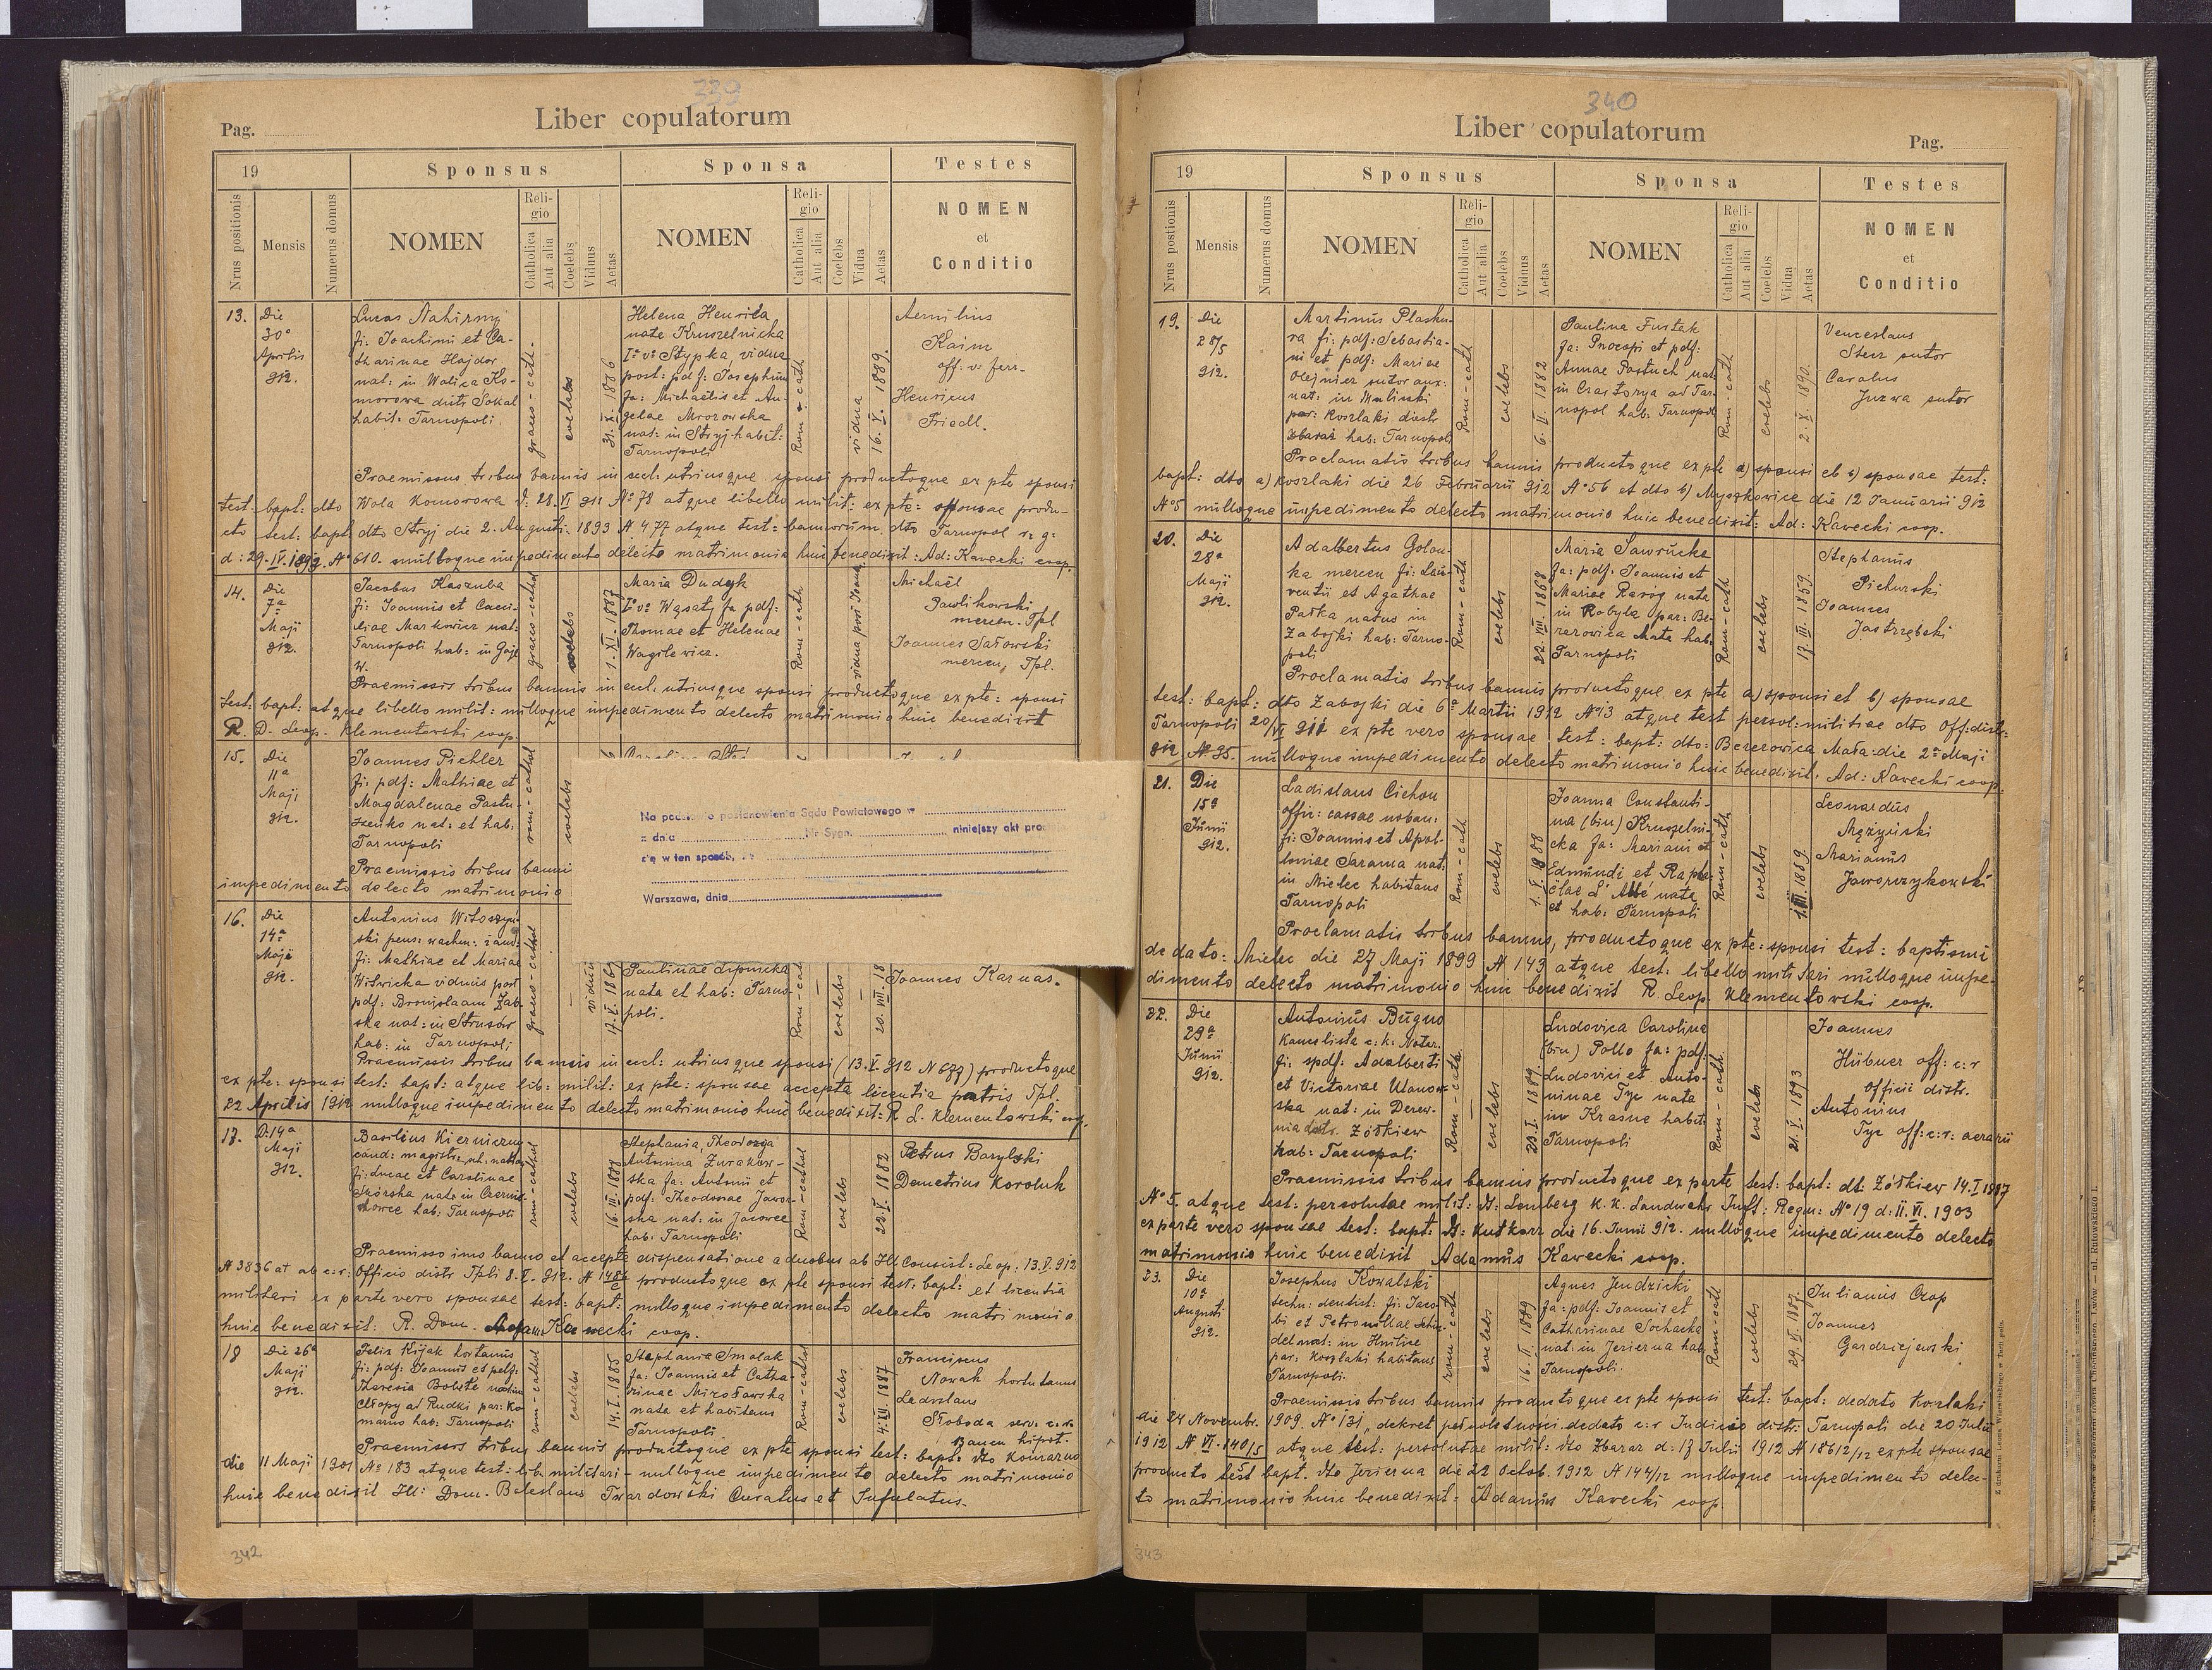 339
Liber copulatorum
Pag.
19
Sponsus
Sponsa
Testes
Nrus positionis
Mensis
Numerus domus
NOMEN
Religio
Catholica
Aut alia
Coelebs
Viduus
Aetas
NOMEN
Religio
Catholica
Aut alia
Coelebs
Vidua
Aetas
NOMEN
et
Conditio
13.
Die
30ª
Aprilis
912.
Lucas Nahirny
fi: Joachimi et Ca-
tharinae Hajdor
nat: in Wolica Ko-
morowa distr. Sokal
habit: Tarnopoli
graeco-cath-
coelebs
31. X. 1886
Helena Henrika
nate Kruszelnicka
Iº vº Stypka, vidua
post: pdf: Josephum
fa: Michaëlis et An-
gelae Mrozowska
nat: in Stryj habit:
Tarnopoli
Rom-cath
vidua
16. V. 1889.
Aemilius
Kaim
off: v. ferr-
Henricus
Friedl.
Praemissus tribus bannis in eccl. utriusque sponsi productoque ex pte sponsi
test: bapt: dto Wola Komorowa d: 28. VI 911 Nº 78 atque libello milit: ex pte: sponsae produ-
cto test: bapt dto Stryj die 2. Augusti 1893 N 477 atque test: bannorum dto Tarnopol r: g:
d: 29. IV. 1892. Nº 610. nulloque impedimento delecto matrimonio huic benedixit: Ad: Kawecki coop.
14.
Die
7ª
Maji
912.
Jacobus Kaszuba
fi: Joannis et Caeci-
liae Markowicz nat:
Tarnopoli hab: in Gaje
W.
graeco-cathol
coelebs
1. XI. 1887
Maria Dudyk
Iº vº Wąsaty fa pdf:
Thomae et Helenae
Wagilewicz.
Rom-cath
Michaël
Pawlikowski
mercen. Tpl
Joannes Sałowski
mercen. Tpl.
Praemissis tribus bannis in eccl. utriusque sponsi productoque ex pte: sponsi
test: bapt: atque libello milit: nulloque impedimento delecto matrimonio huic benedixit
R. D. Leop. Klementowski coop.
15.
Die
11ª
Maji
912.
Joannes Pichler
fi: pdf: Mathiae et
Magdalenae Pastu-
szenko nat: et hab:
Tarnopoli
rom-cathol
coelebs
Praemissis tribus banni
impedimento delecto matrimonio
Na podstawie postanowienia Sądu Powiatowego w
z dnia Nr Sygn. niniejszy akt pro
się w ten sposób, że
Warszawa, dnia
16.
Die
14ª
Maji
912.
Antonius Witoszyń-
ski pens: wachm: żand:
fi: Mathiae et Mariae
Witwicka viduus post
pdf: Bronislaam Zab-
ska nat: in Strusów
hab: in Tarnopoli
graeco-cathol
viduus
Paulinae Lipnicka
nata et hab: Tarno-
poli.
Rom-cath
coelebs
Joannes Karnas.
Praemissis tribus bannis in eccl: utriusque sponsi (13. V. 912 N 677) productoque
ex pte: sponsi test: bapt: atque lib: milit: ex pte: sponsae accepta licentia patris Tpl.
22 Aprilis 1912 nulloque impedimento delecto matrimonio huic benedixit: R L. Klementowski coop.
17.
D: 14ª
Maji
912.
Basilius Kierniczny
cand: magistr.
fi: Lucae et Carolinae
Skórska nate in Czernic-
howce hab: Tarnopoli
rom-cathol
coelebs
16. III. 1881
Stephania, Theodozya
Antonina Zurakow-
ska fa: Antonii et
pdf: Theodosiae Jawor-
ska nat: in Jacowce
hab: Tarnopoli
Rom-cathol
coelebs
23. V. 1882
Petrus Barylski
Demetrius Koroluk
Praemisso uno banno et accepta dispensatione a duobus ab Ill Consist: Leop: 13. V. 912
N 3836 at ab c: r: Officio distr Tpli 8. V. 912. N 1484 productoque ex pte sponsi test. bapt: et licentia
militari ex parte vero sponsae test: bapt: nulloque impedimento delecto matrimonio
huic benedixit: R. Dom. Adam Kawecki coop.
18
Die 26ª
Maji
912.
Felix Kijak hortanus
fi: pdf: Joannis et pdf:
Theresia Bobite
Chłopy ad Rudki par: Ko-
marno hab: Tarnopoli
rom-cathol
coelebs
14. I. 1885
Stephania Smolak
fa: Joannis et Catha-
rinae Mirosławska
nata et habitans
Tarnopoli
Rom-cathol
coelebs
4. III. 1887
Franciscus
Nowak hortulanus
Ladislaus
Słoboda serv. c. r.
Bancu hipot.
Praemissis tribus bannis productoque ex pte sponsi test: bapt: dto Komarno
die 11 Maji 1901 Nº 183 atque test: lib militari - nulloque impedimento delecto matrimonio
huic benedixit Ill: Dom. Boleslaus Twardowski Curatus et Infulatus.
342
340
Liber copulatorum
Pag.
19
Sponsus
Sponsa
Testes
Nrus postionis
Mensis
Numerus domus
NOMEN
Religio
Catholica
Aut alia
Coelebs
Viduus
Aetas
NOMEN
Religio
Catholica
Aut alia
Coelebs
Vidua
Aetas
NOMEN
et
Conditio
19.
Die
28/5
912.
Martinus Plasku-
ra fi: pdf: Sebastia-
ni et pdf: Mariae
Olejnicz sutor aux:
nat: in Mulinski
par: Koszlaki distr
Zbaraż hab: Tarnopoli
Rom-cath
coelebs
6. II. 1882
Paulina Furtak
fa: Procopi et pdf:
Annae Pastuch nat:
in Czastorya ad Tar-
nopol hab: Tarnopoli
Rom-cath
coelebs
2. X. 1890.
Venceslaus
Sterz sutor
Carolus
Juzwa sutor
Proclamatis tribus bannis productoque ex pte a) sponsi et b) sponsae test:
bapt: dto a) Koszlaki die 26 Februarii 912 Nº 56 et dto b) Myszkowice die 12 Januarii 912
Nº 5 nulloque impedimento delecto matrimonio huic benedixit: Ad: Kawecki coop.
20.
Die
28ª
Maji
912.
Adalbertus Golou-
ka mercen fi: Lau-
rentii et Agathae
Patka natus in
Zabojki hab: Tarno-
poli
Rom-cath
coelebs
22. VIII. 1868
Maria Sawrucka
fa: pdf: Joannis et
Mariae Raróg nata
in Kobyla par: Be-
rezowica Mała hab:
Tarnopoli
Rom-cath
coelebs
17. III. 1859.
Stephanus
Pichurski
Joannes
Jastrzębski
Proclamatis tribus bannis productoque ex pte a) sponsi et b) sponsae
test: bapt: dto Zabojki die 6ª Martii 1912 Nº 13 atque test persol: militiae dto Off: distr:
Tarnopoli 20/VI 911 ex pte vero sponsae test: bapt: dto: Berezowica Mała: die 2ª Maji
912 Nº 35. nulloque impedimento delecto matrimonio huic benedixit. Ad: Kawecki coop.
21.
Die
15ª
Junii
912.
Ladislaus Cichon
offic: cassae
fi: Joannis et Apol-
loniae Sarama nat:
in Mielec habitans
Tarnopoli
Rom-cath
coelebs
1. V. 1888
Joanna Constanti-
na (bin) Kruszelni-
cka fa: Mariani et
Edmundi et Rapha-
ëlae L'Abbé nata
et hab: Tarnopoli
Rom-cath
coelebs
1. III. 1889.
Leonardus
Mężyński
Marianus
Jaworzykowski
Proclamatis tribus bannis, productoque ex pte: sponsi test: baptismi
de dato: Mielec die 27 Maji 1899 N 143 atque test: libello militari nulloque impe-
dimento delecto matrimonio huic benedixit R. Leop. Klementowski coop.
22.
Die
29ª
Junii
912.
Antonius Bugno
kancelista c: k: Noter.
fi: spdf: Adalberti
et Victoriae Ulanow-
ska nat: in Derew-
nia distr. Zółkiew
hab: Tarnopoli
Rom-cath.
coelebs
23. I. 1889.
Ludovica Carolina
(bin) Pollo fa: pdf:
Ludovici et Anto-
ninae Tyc nata
in Krasne habit:
Tarnopoli
Rom-cath.
coelebs
21. V. 1893
Joannes
Hübner off: c: r
Officii distr.
Antonius
Tyc off: c: r: aerarii
Praemissis tribus bannis productoque ex parte test: bapt: dt: Zółkiew 14. I 1887
Nº 5. atque test: persolutae milit: dt: Lemberg K. K. Landwehr Inft: Regm: Nº 19 d: II. VI. 1903
ex parte vero sponsae test: bapt: dt: Kutkorz die 16. Junii 912. nulloque impedimento delecto
matrimonio huic benedixit Adamus Kawecki coop.
23.
Die
10ª
Augusti
912.
Josephus Kowalski
techn: dentist: fi: Jaco-
bi et Petronillae
del nat: in Hnilice
par: Koszlaki habitans
Tarnopoli.
rom-cath
coelebs
16. II. 1889
Agnes Jendzicki
fa: pdf: Joannis et
Catharinae Sochacka
nat: in Jezierna hab
Tarnopoli.
Rom-cath
coelebs
29. II. 1887.
Julianus Czop
Joannes
Gardziejewski
Praemissis tribus bannis productoque ex pte sponsi test: bapt: dedato Koszlaki
die 24 Novembr. 1909. Nº 131, dekret pełnoletności dedato c: r Judicio distr: Tarnopoli die 20 Julii
1912 N VI. 140/5 atque test: persolutae milit: dto Zbaraz d: 17 Julii 1912 N 18612/12 ex pte sponsae
producto test bapt. dto Jezierna die 22 Octob. 1912 N 144/12 nulloque impedimento delec-
to matrimonio huic benedixit: Adamus Kawecki coop.
343